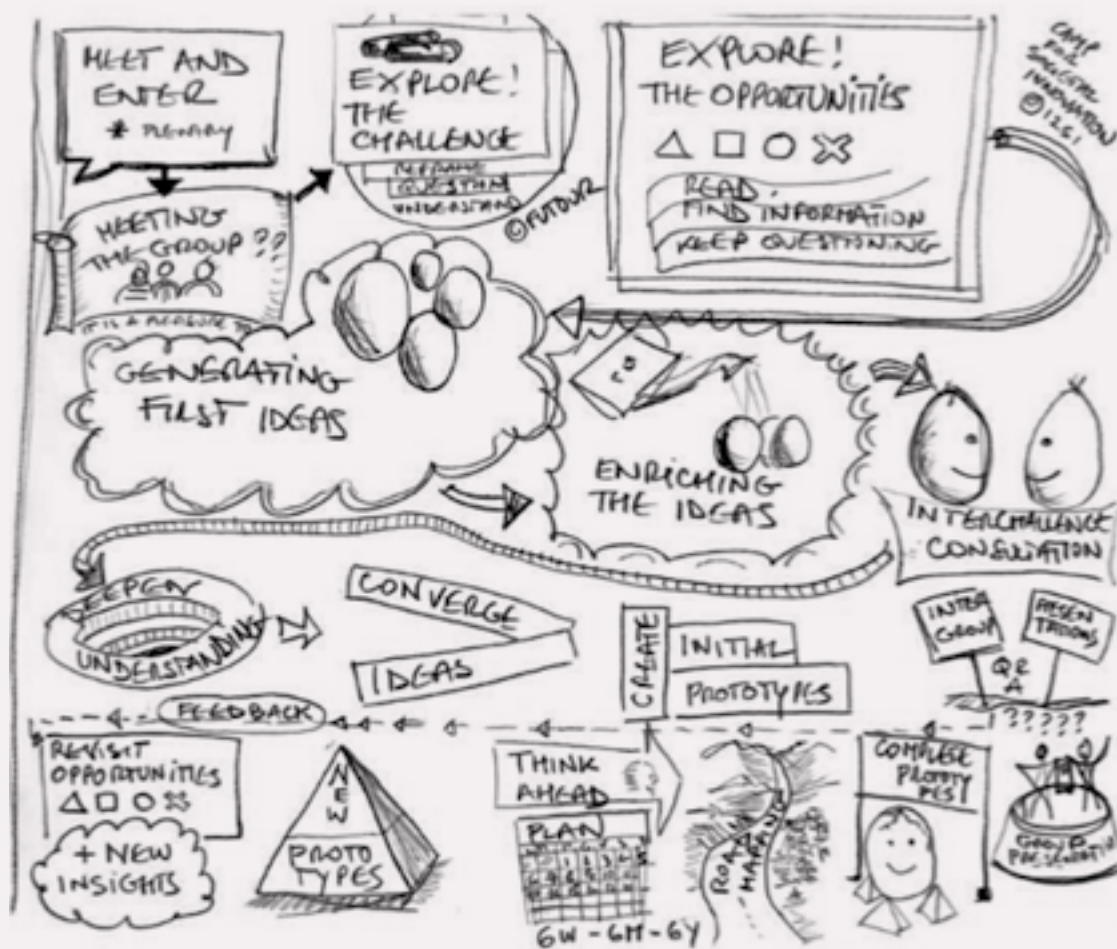 MEET AND
ENTER
* PLENARY
EXPLORE!
THE
CHALLENGE
REFRAME
QUESTION
UNDERSTAND
©FUTOUR
EXPLORE!
THE OPPORTUNITIES
READ
FIND INFORMATION
KEEP QUESTIONING
CAMP
FOR
SOCIETAL
INNOVATION
MEETING
THE GROUP ??
IT IS A PLEASURE TO
GENERATING
FIRST IDEAS
ENRICHING
THE IDEAS
INTERCHALLENGE
CONSULTATION
DEEPEN
UNDERSTANDING
CONVERGE
IDEAS
CREATE
INITIAL
PROTOTYPES
INTER
GROUP
PRESEN
TATIONS
Q&
A
?????
FEEDBACK
REVISIT
OPPORTUNITIES
+ NEW
INSIGHTS
NEW
PROTO
TYPES
THINK
AHEAD
PLAN
6W - 6M - 6Y
ROAD
MAPPING
COMPLETE
PROTOTY
PES!
GROUP
PRESENTATION